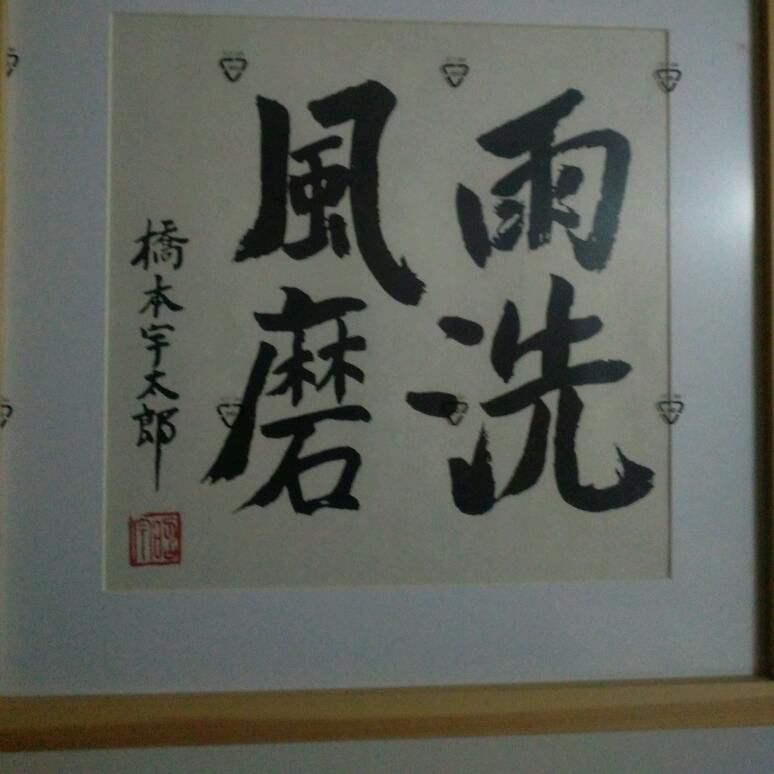 雨洗
風磨
橋本宇太郎